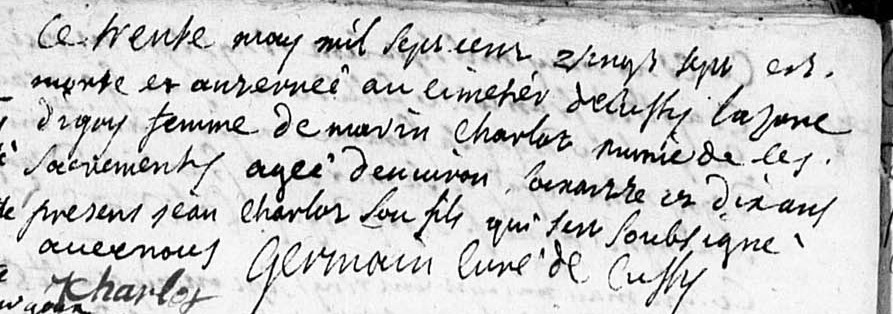 Ce trente may mil sept cent vingt sept est
morte et anterreé au cimetér de Cussy lazare
digoy femme de marin Charlot munie de ses
sacrements ageé denuiron soixante et dix ans
present jean Charlot son fils qui sest soubsigné
auec nous Germain Curé de Cussy
Charlot